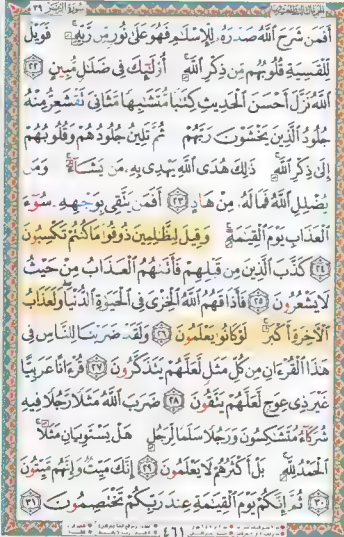 سورة الزمر ٣٩
أَفَمَن شَرَحَ ٱللَّهُ صَدْرَهُۥ لِلْإِسْلَٰمِ فَهُوَ عَلَىٰ نُورٍ مِّن رَّبِّهِۦ ۚ فَوَيْلٌ
لِّلْقَٰسِيَةِ قُلُوبُهُم مِّن ذِكْرِ ٱللَّهِ ۚ أُو۟لَٰٓئِكَ فِى ضَلَٰلٍ مُّبِينٍ ٢٢
ٱللَّهُ نَزَّلَ أَحْسَنَ ٱلْحَدِيثِ كِتَٰبًا مُّتَشَٰبِهًا مَّثَانِىَ تَقْشَعِرُّ مِنْهُ
جُلُودُ ٱلَّذِينَ يَخْشَوْنَ رَبَّهُمْ ثُمَّ تَلِينُ جُلُودُهُمْ وَقُلُوبُهُمْ
إِلَىٰ ذِكْرِ ٱللَّهِ ۚ ذَٰلِكَ هُدَى ٱللَّهِ يَهْدِى بِهِۦ مَن يَشَآءُ ۚ وَمَن
يُضْلِلِ ٱللَّهُ فَمَا لَهُۥ مِنْ هَادٍ ٢٣ أَفَمَن يَتَّقِى بِوَجْهِهِۦ سُوٓءَ
ٱلْعَذَابِ يَوْمَ ٱلْقِيَٰمَةِ ۚ وَقِيلَ لِلظَّٰلِمِينَ ذُوقُوا۟ مَا كُنتُمْ تَكْسِبُونَ
٢٤ كَذَّبَ ٱلَّذِينَ مِن قَبْلِهِمْ فَأَتَىٰهُمُ ٱلْعَذَابُ مِنْ حَيْثُ
لَا يَشْعُرُونَ ٢٥ فَأَذَاقَهُمُ ٱللَّهُ ٱلْخِزْىَ فِى ٱلْحَيَوٰةِ ٱلدُّنْيَا ۖ وَلَعَذَابُ
ٱلْءَاخِرَةِ أَكْبَرُ ۚ لَوْ كَانُوا۟ يَعْلَمُونَ ٢٦ وَلَقَدْ ضَرَبْنَا لِلنَّاسِ فِى
هَٰذَا ٱلْقُرْءَانِ مِن كُلِّ مَثَلٍ لَّعَلَّهُمْ يَتَذَكَّرُونَ ٢٧ قُرْءَانًا عَرَبِيًّا
غَيْرَ ذِى عِوَجٍ لَّعَلَّهُمْ يَتَّقُونَ ٢٨ ضَرَبَ ٱللَّهُ مَثَلًا رَّجُلًا فِيهِ
شُرَكَآءُ مُتَشَٰكِسُونَ وَرَجُلًا سَلَمًا لِّرَجُلٍ هَلْ يَسْتَوِيَانِ مَثَلًا ۚ
ٱلْحَمْدُ لِلَّهِ ۚ بَلْ أَكْثَرُهُمْ لَا يَعْلَمُونَ ٢٩ إِنَّكَ مَيِّتٌ وَإِنَّهُم مَّيِّتُونَ
٣٠ ثُمَّ إِنَّكُمْ يَوْمَ ٱلْقِيَٰمَةِ عِندَ رَبِّكُمْ تَخْتَصِمُونَ ٣١
٤٦١